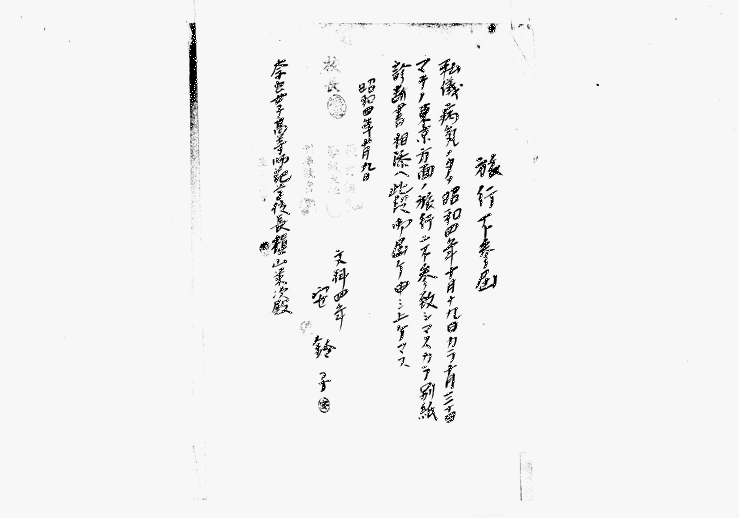 旅行不参届
私儀病気ノタメ昭和四年十月十九日カラ十月三十日
マデノ東京方面ノ旅行ニ不参致シマスカラ別紙
診断書相添ヘ此段御届ケ申シ上ゲマス
昭和四年十月九日
文科四年
安鈴子
校長
奈良女子高等師範学校長槇山栄次殿